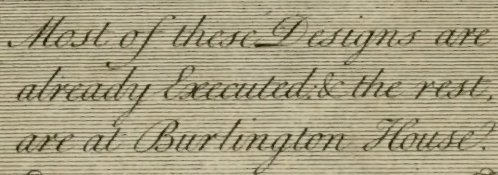 Most of these Designs are
already Executed. & the rest,
are at Burlington House.